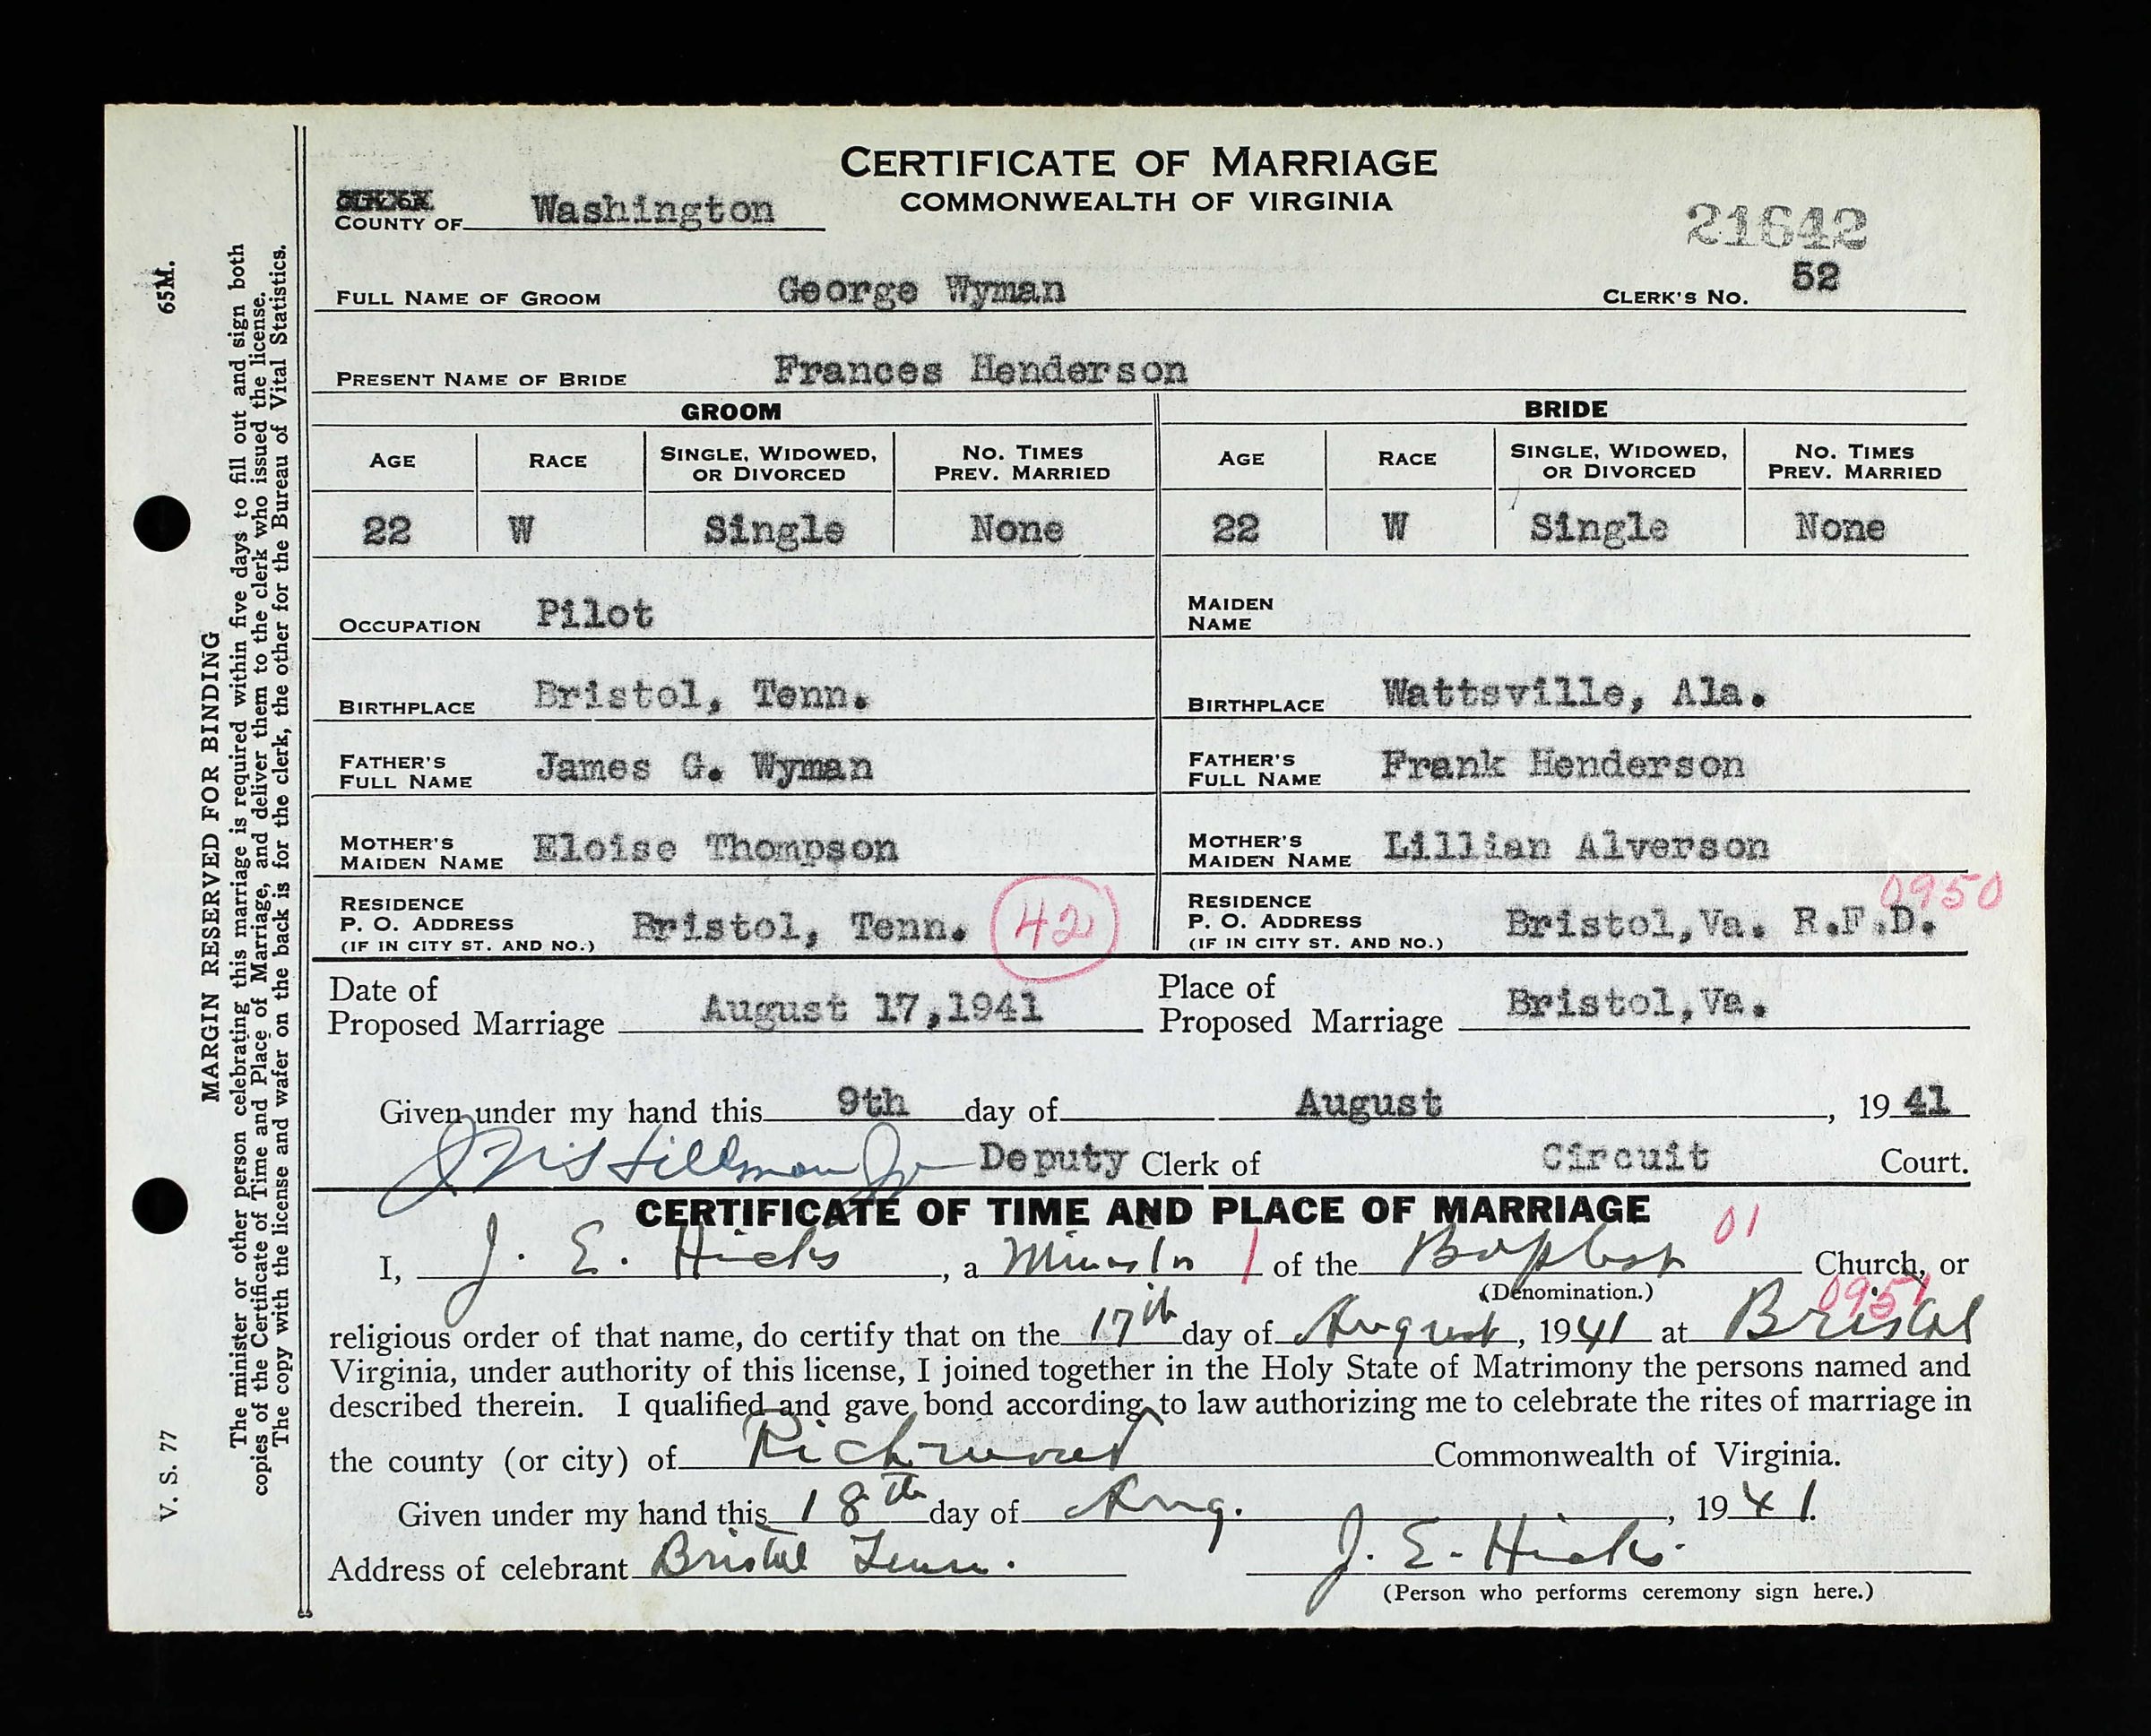 CERTIFICATE OF MARRIAGE
COMMONWEALTH OF VIRGINIA
CITY OR
COUNTY OF Washington
21642
FULL NAME OF GROOM George Wyman CLERK'S NO. 52
PRESENT NAME OF BRIDE Frances Henderson
GROOM BRIDE
AGE RACE SINGLE, WIDOWED, OR DIVORCED NO. TIMES PREV. MARRIED AGE RACE SINGLE, WIDOWED, OR DIVORCED NO. TIMES PREV. MARRIED
22 W Single None 22 W Single None
OCCUPATION Pilot MAIDEN NAME
BIRTHPLACE Bristol, Tenn. BIRTHPLACE Wattsville, Ala.
FATHER'S FULL NAME James G. Wyman FATHER'S FULL NAME Frank Henderson
MOTHER'S MAIDEN NAME Eloise Thompson MOTHER'S MAIDEN NAME Lillian Alverson
RESIDENCE P. O. ADDRESS (IF IN CITY ST. AND NO.) Bristol, Tenn. 42 RESIDENCE P. O. ADDRESS (IF IN CITY ST. AND NO.) Bristol,Va. R.F.D. 0950
Date of Proposed Marriage August 17,1941 Place of Proposed Marriage Bristol,Va.
Given under my hand this 9th day of August, 1941
Hillman Jr Deputy Clerk of Circuit Court.
CERTIFICATE OF TIME AND PLACE OF MARRIAGE
01
I, J. E. Hicks, a Minister 1 of the Baptist Church, or
(Denomination.)
0951
religious order of that name, do certify that on the 17th day of August, 1941 at Bristol
Virginia, under authority of this license, I joined together in the Holy State of Matrimony the persons named and
described therein. I qualified and gave bond according to law authorizing me to celebrate the rites of marriage in
the county (or city) of Richmond Commonwealth of Virginia.
Given under my hand this 18th day of Aug., 1941.
Address of celebrant Bristol Tenn. J. E. Hicks.
(Person who performs ceremony sign here.)
65M.
MARGIN RESERVED FOR BINDING
The minister or other person celebrating this marriage is required within five days to fill out and sign both
copies of the Certificate of Time and Place of Marriage, and deliver them to the clerk who issued the license.
The copy with the license and wafer on the back is for the clerk, the other for the Bureau of Vital Statistics.
V. S. 77